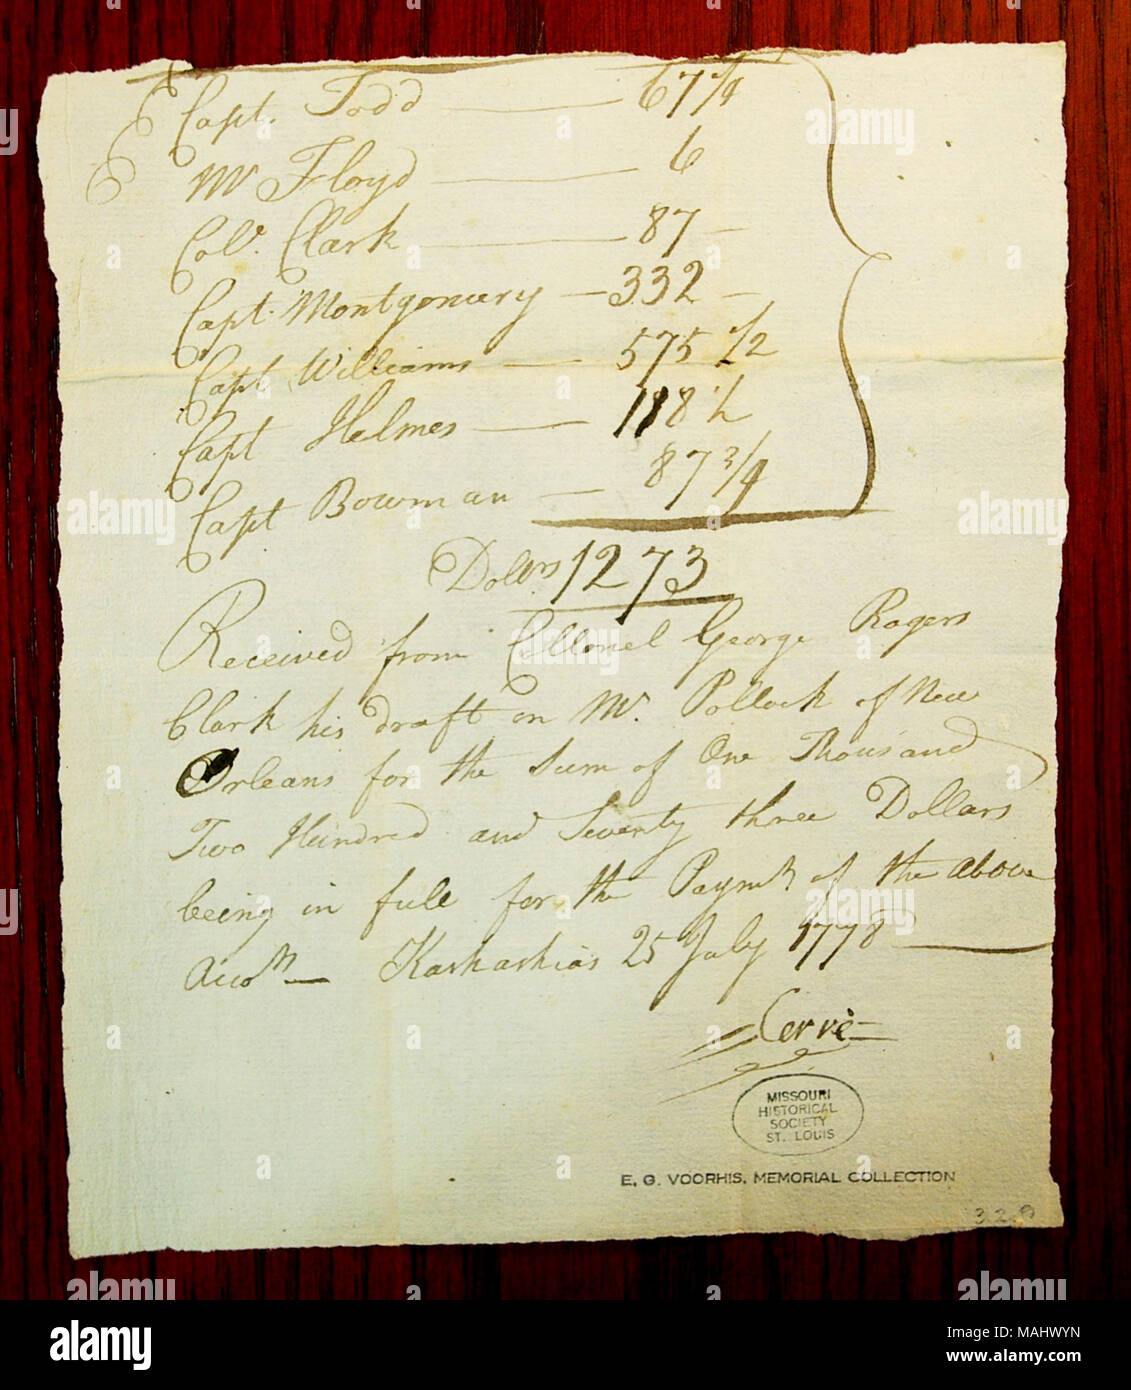 Capt. Todd — 67 1/4
Mr Floyd — 6
Colo. Clark — 87 —
Capt. Montgomery — 332 —
Capt Williams — 575 1/2
Capt Helmes — 118 1/2
Capt Bowman — 87 3/4
Dollrs 1273
Received from Collonel George Rogers
Clark his draft on Mr. Pollock of New
Orleans for the Sum of One Thousand
Two Hundred and Seventy three Dollars
being in full for the Paymt of the above
Accots — Kaskaskias 25 July 1778 —
Cerré
MISSOURI
HISTORICAL
SOCIETY
ST. LOUIS
E. G. VOORHIS, MEMORIAL COLLECTION
alamy
alamy stock photo
Image ID: MAHWYN
www.alamy.com